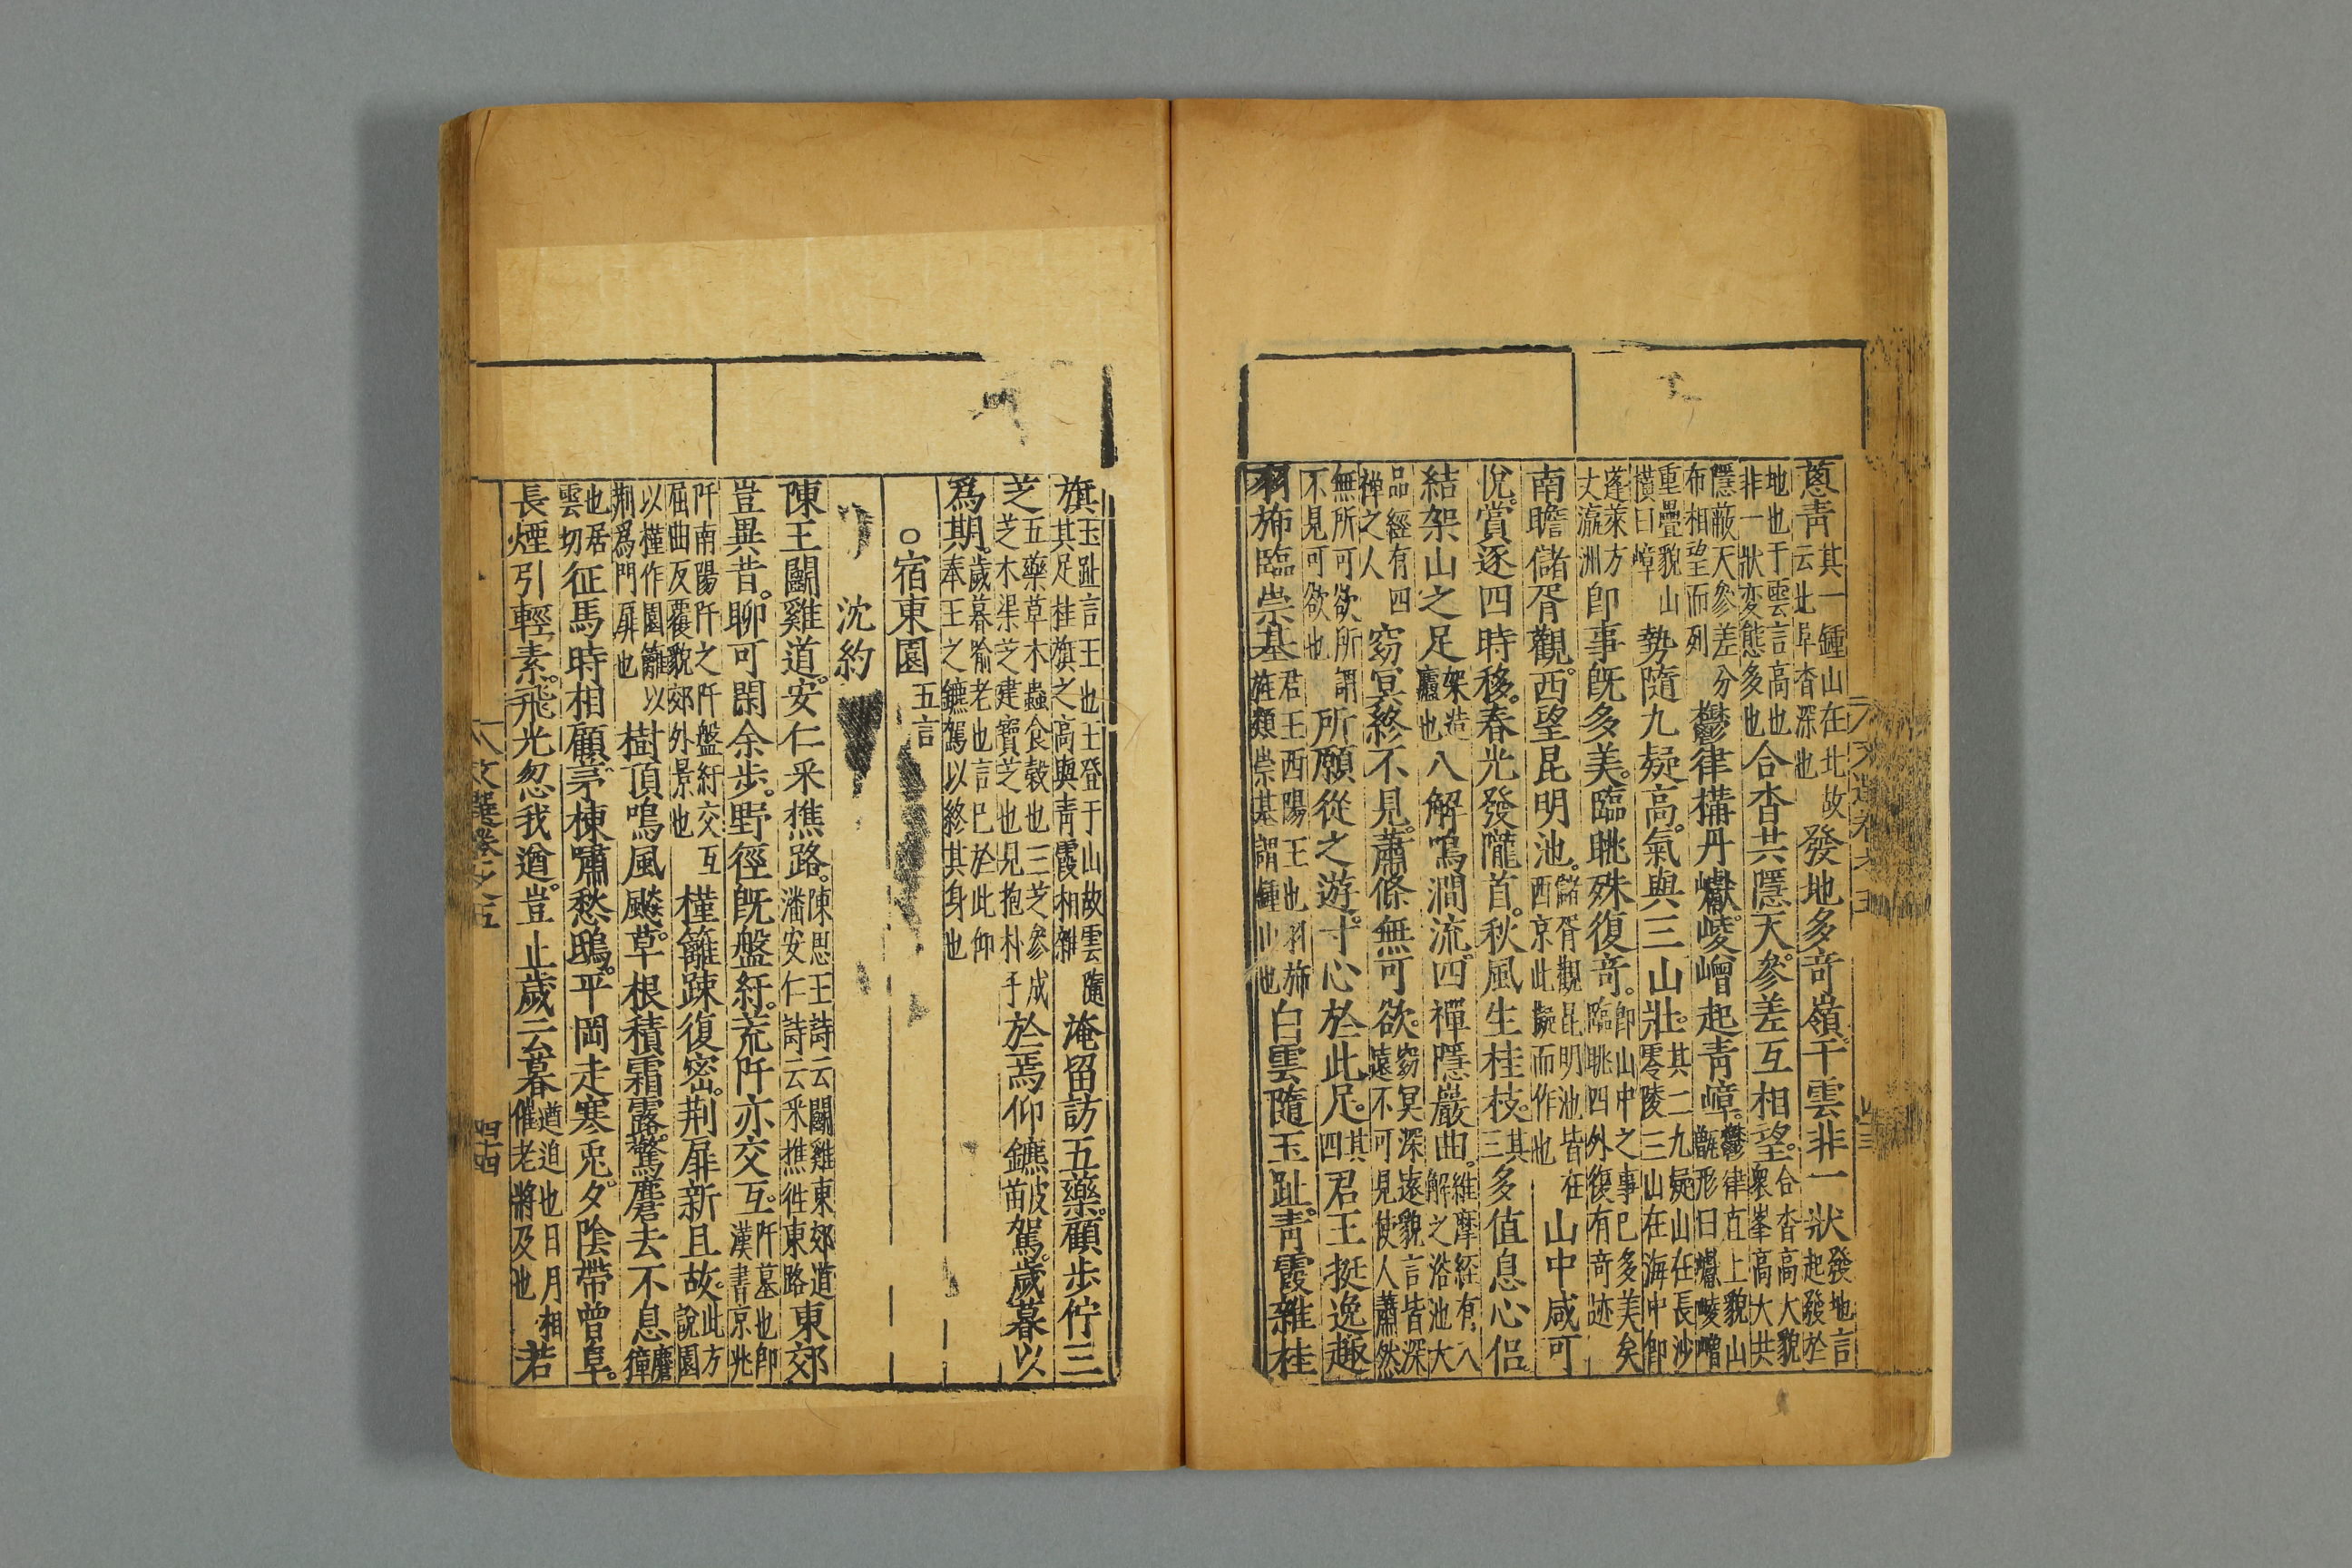 蔥青其一鍾山在北故云北阜杳深也發地多竒嶺干雲非一狀發地言起發於
地也于雲言高也非一狀変態多也合沓共隱天。參差互相望。合沓高大貌衆峯高大共
隱蔽天參差分布相望而列鬱律構丹巘。崚嶒起青嶂。鬱律直上貌山甑形曰巘崚嶒
重疊貌山橫曰嶂勢隨九疑高。氣與三山壯。其二九疑山在長沙零陵三山在海中卽
蓬萊方丈瀛洲卽事旣多美。臨眺殊復竒。卽山中之事已多美矣臨眺四外復有竒迹
南瞻儲胥觀。西望昆明池。儲胥觀昆明池皆在西京此擬而作也山中咸可
悅。賞逐四時移。春光發隴首。秋風生桂枝。其三多值息心侶
結架山之足架造廬也八解鳴澗流。四禪隱巖曲。維摩経有八解之浴池大
品經有四禅之人窈冥終不見。蕭條無可欲。窈冥深遠貌言皆深遠不可見使人蕭然
無所可欲所謂不見可欲也所願從之遊。寸心於此足。其四君王挺逸趣
羽斾臨崇基君王西陽王也羽斾旌類崇基謂鍾山也白雲隨玉趾。青霞雜桂
旗玉趾言王也王登于山故雲隨其足桂旗之高與青霞相雜淹留訪五藥。顧步佇三
芝五藥草木蟲食穀也三芝參成芝木渠芝建寶芝也見抱朴子於焉仰鑣皮苗駕。歲暮以
爲期。歲暮喻老也言已於此仰奉王之鑣駕以終其身也
○宿東園五言
沈約
陳王鬭雞道。安仁采樵路。陳思王詩云鬭雞東郊道潘安仁詩云采樵徃東路東郊
豈異昔。聊可閑余步。野徑旣盤紆。荒阡亦交互。阡墓也卽漢書京兆
阡南陽阡之阡盤紆交互屈曲反覆貌郊外景也槿籬疎復密。荆扉新且故。此方說園
以槿作園籬以荆爲門扉也樹頂鳴風飈。草根積霜露。驚麏去不息麏獐
也居雲切征馬時相顧。茅棟嘯愁鴟。平岡走寒兎。夕陰帶曾阜。
長煙引輕素。飛光忽我遒。豈止歲云暮遒迫也日月相催老將及也若
文選卷之五
四十四